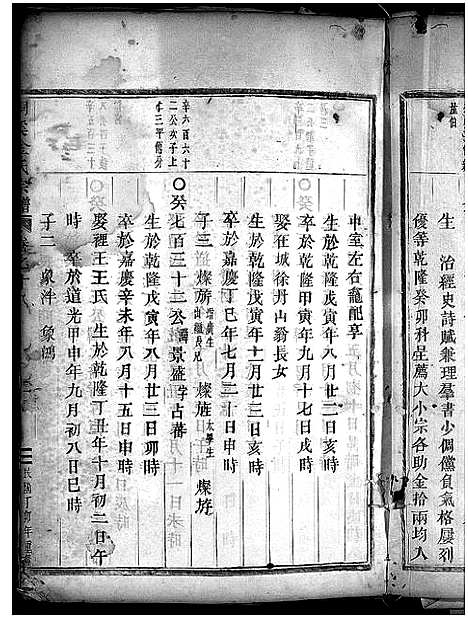 生　治經史詩賦兼理羣書少倜儻負氣格屢列
優等乾隆癸卯科呈薦大小宗各助金拾兩均入
中室左右龕配享
生於乾隆戊寅年八月廿二日亥時
卒於乾隆甲寅年九月十七日戌時
娶在城徐丹山翁長女
生於乾隆戊寅年十一月廿三日亥時
卒於嘉慶丁巳年七月三十日申時
子三　燦旂　燦旌 太學生　燦旂
辛六百六十
二公次子上
〇癸七百三十三公諱景盛字占蕃
生於乾隆戊寅年八月廿三日卯時
卒於嘉慶辛未年八月十五日申時
娶裡王王氏　生於乾隆丁丑年十月初二日午
時　卒於道光甲申年九月初八日巳時
子二　象泮　象鴻